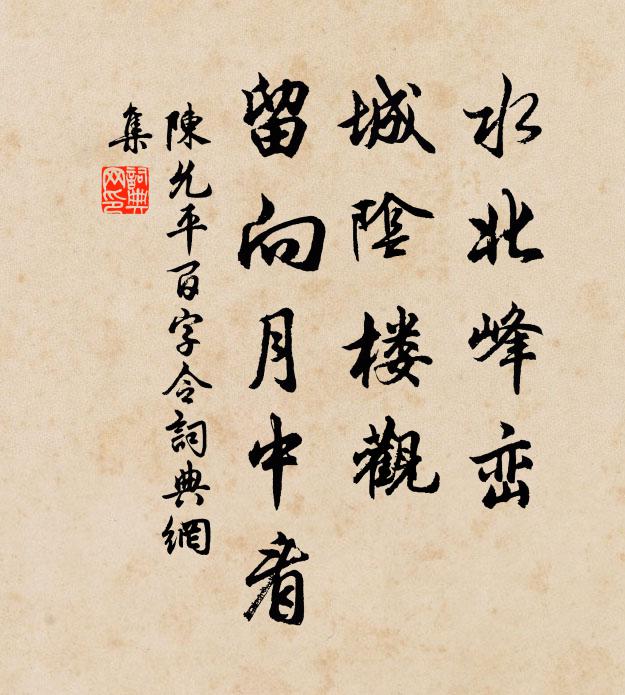 水北峰峦
城陰楼觀
留向月中看
陳允平百字令詞典網
集
詞典
网印